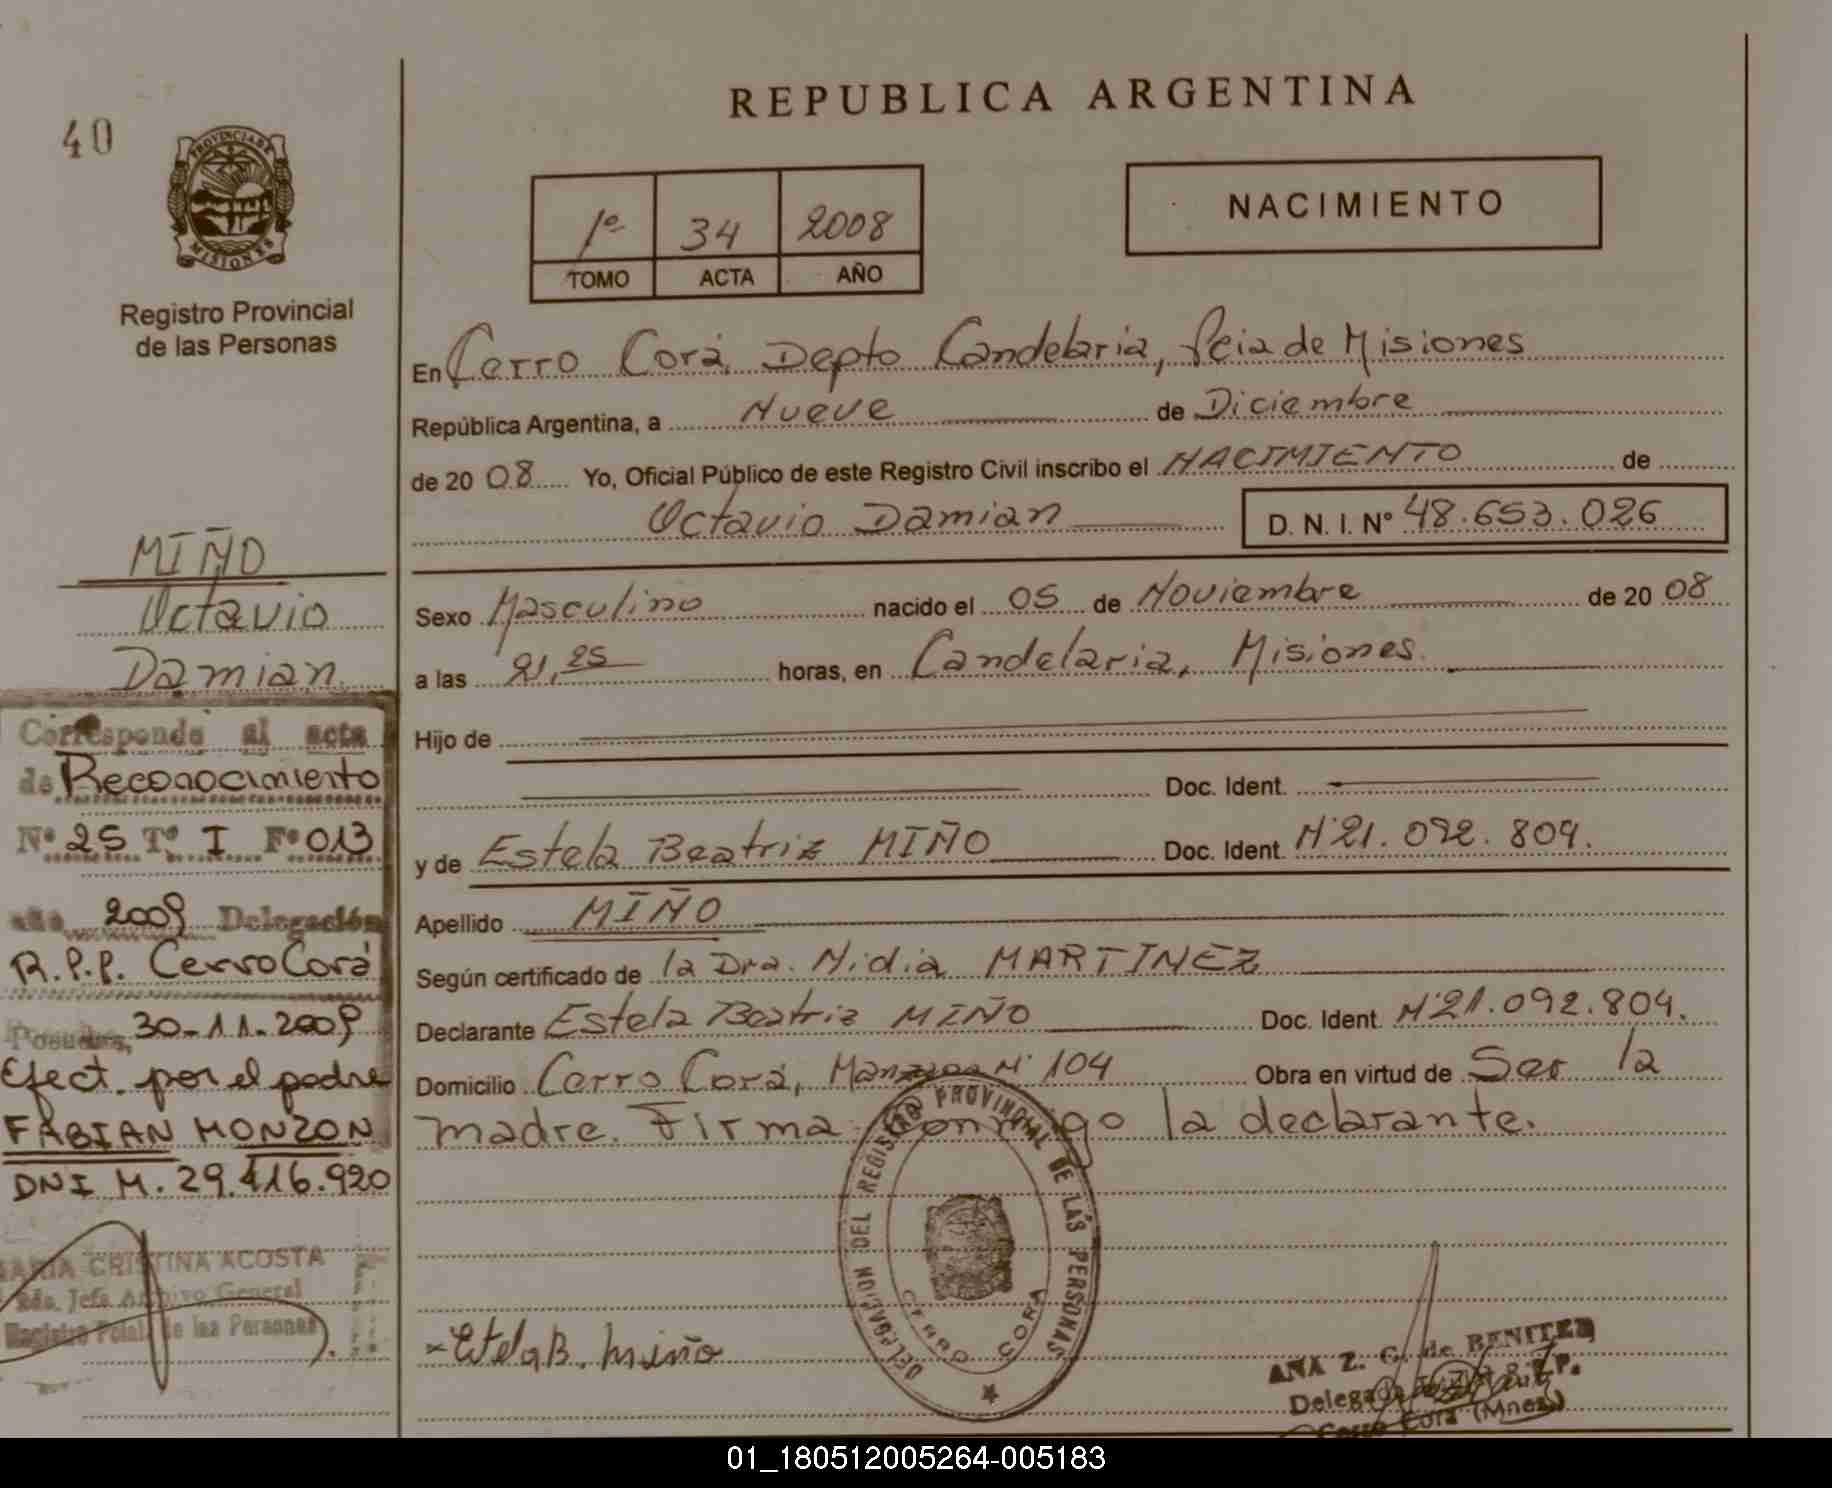 REPUBLICA ARGENTINA
40
PROVINCIA DE
MISIONES
Registro Provincial
de las Personas
1º 34 2008
TOMO ACTA AÑO
NACIMIENTO
En Cerro Corá, Depto Candelaria, Pcia de Misiones
República Argentina, a Nueve de Diciembre
de 20 08 Yo, Oficial Público de este Registro Civil inscribo el NACIMIENTO de
Octavio Damian D. N. I. Nº 48.653.026
Sexo Masculino nacido el 05 de Noviembre de 20 08
a las 21,25 horas, en Candelaria, Misiones.
Hijo de
Doc. Ident.
y de Estela Beatriz MIÑO Doc. Ident. Nº21.092.804.
Apellido MIÑO
Según certificado de la Dra. Nidia MARTINEZ
Declarante Estela Beatriz MIÑO Doc. Ident. Nº21.092.804.
Domicilio Cerro Corá, Manzana Nº 104 Obra en virtud de Ser la
madre. Firma conmigo la declarante.
MIÑO
Octavio
Damian
Corresponde al acta
de Reconocimiento
Nº 25 Tº I Fº 013
año 2009 Delegación
R.P.P. Cerro Corá
Posadas, 30-11-2009
Efect. por el padre
FABIAN MONZON
DNI M. 29.416.920
MARIA CRISTINA ACOSTA
Jefe Archivo General
Registro Pcial. de las Personas
Estela B. Miño
DELEGACION DEL REGISTRO PROVINCIAL DE LAS PERSONAS
CERRO CORA
ANA Z. G. de BENITEZ
Delegada
Cerro Corá (Mnes.)
01_180512005264-005183